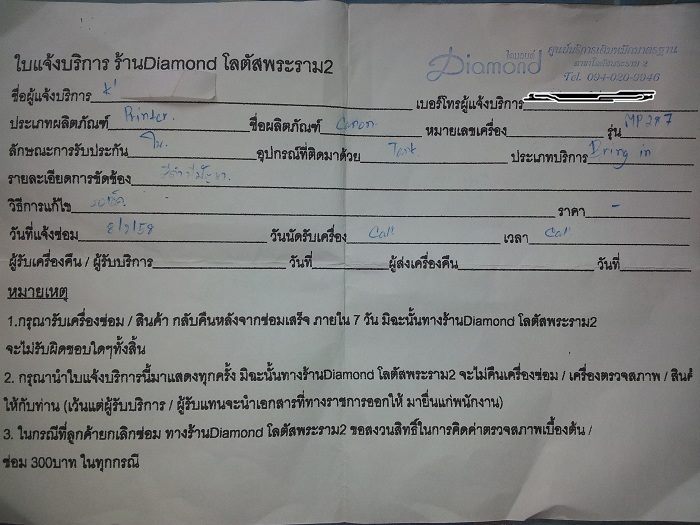 ไดมอนด์
Diamond
ศูนย์บริการเติมหมึกมาตรฐาน
สาขาโลตัสพระราม 2
Tel. 094-020-9946
ใบแจ้งบริการ ร้านDiamond โลตัสพระราม2
ชื่อผู้แจ้งบริการ K' เบอร์โทรผู้แจ้งบริการ
ประเภทผลิตภัณฑ์ Printer. ชื่อผลิตภัณฑ์ Canon หมายเลขเครื่อง รุ่น MP287
ลักษณะการรับประกัน อุปกรณ์ที่ติดมาด้วย Tank ประเภทบริการ Bring in
รายละเอียดการขัดข้อง
วิธีการแก้ไข รอเช็ค ราคา -
วันที่แจ้งซ่อม วันนัดรับเครื่อง Call เวลา Call
ผู้รับเครื่องคืน / ผู้รับบริการ วันที่ ผู้ส่งเครื่องคืน วันที่
หมายเหตุ
1.กรุณารับเครื่องซ่อม / สินค้า กลับคืนหลังจากซ่อมเสร็จ ภายใน 7 วัน มิฉะนั้นทางร้านDiamond โลตัสพระราม2
จะไม่รับผิดชอบใดๆทั้งสิ้น
2. กรุณานำใบแจ้งบริการนี้มาแสดงทุกครั้ง มิฉะนั้นทางร้านDiamond โลตัสพระราม2 จะไม่คืนเครื่องซ่อม / เครื่องตรวจสภาพ / สินค้
ให้กับท่าน (เว้นแต่ผู้รับบริการ / ผู้รับแทนจะนำเอกสารที่ทางราชการออกให้ มายื่นแก่พนักงาน)
3. ในกรณีที่ลูกค้ายกเลิกซ่อม ทางร้านDiamond โลตัสพระราม2 ขอสงวนสิทธิ์ในการคิดค่าตรวจสภาพเบื้องต้น /
ซ่อม 300บาท ในทุกกรณี